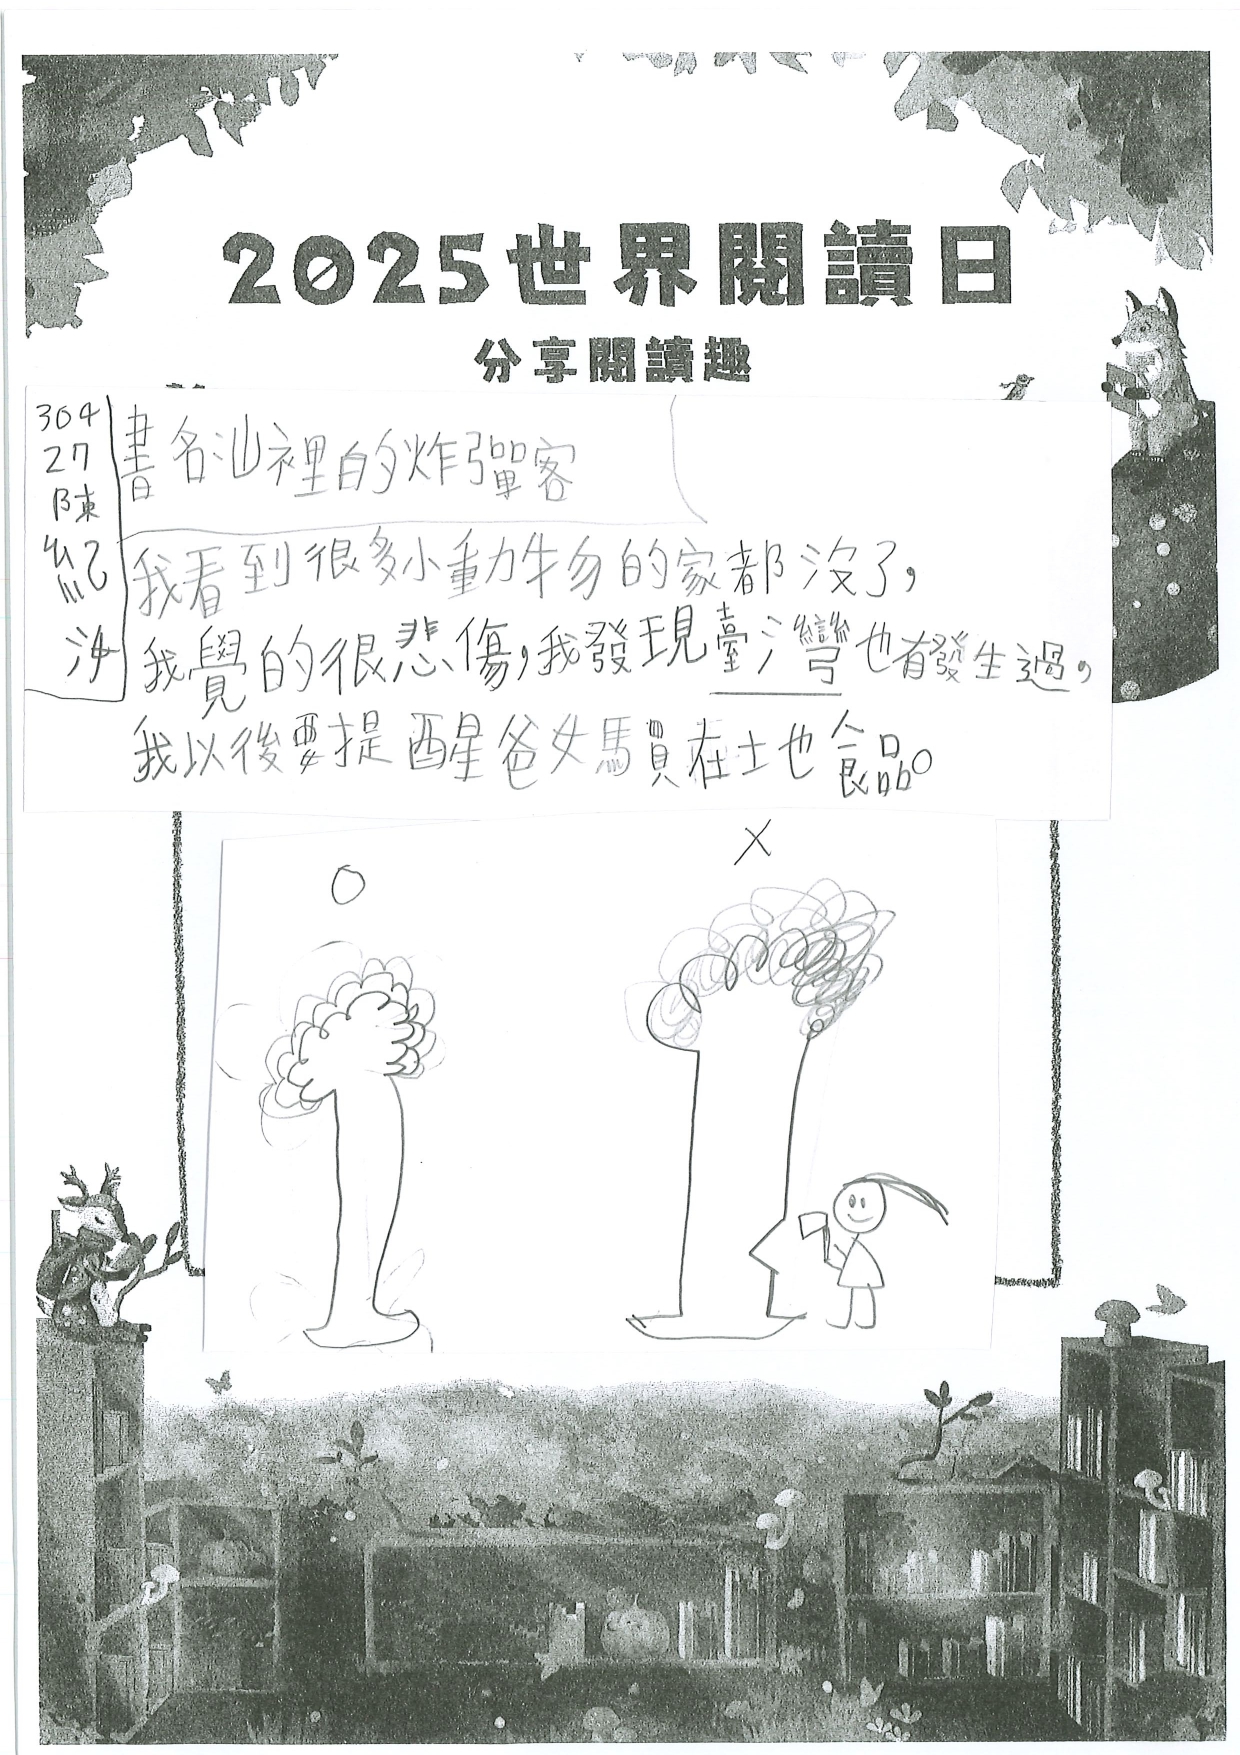 2025世界閱讀日
分享閱讀趣
304
27
陳
紀
汐
書名汕裡的炸彈客
我看到很多小動物的家都沒了，
我覺的很悲傷，我發現臺灣也有發生過，
我以後要提醒爸媽買在土也食品。
O
X